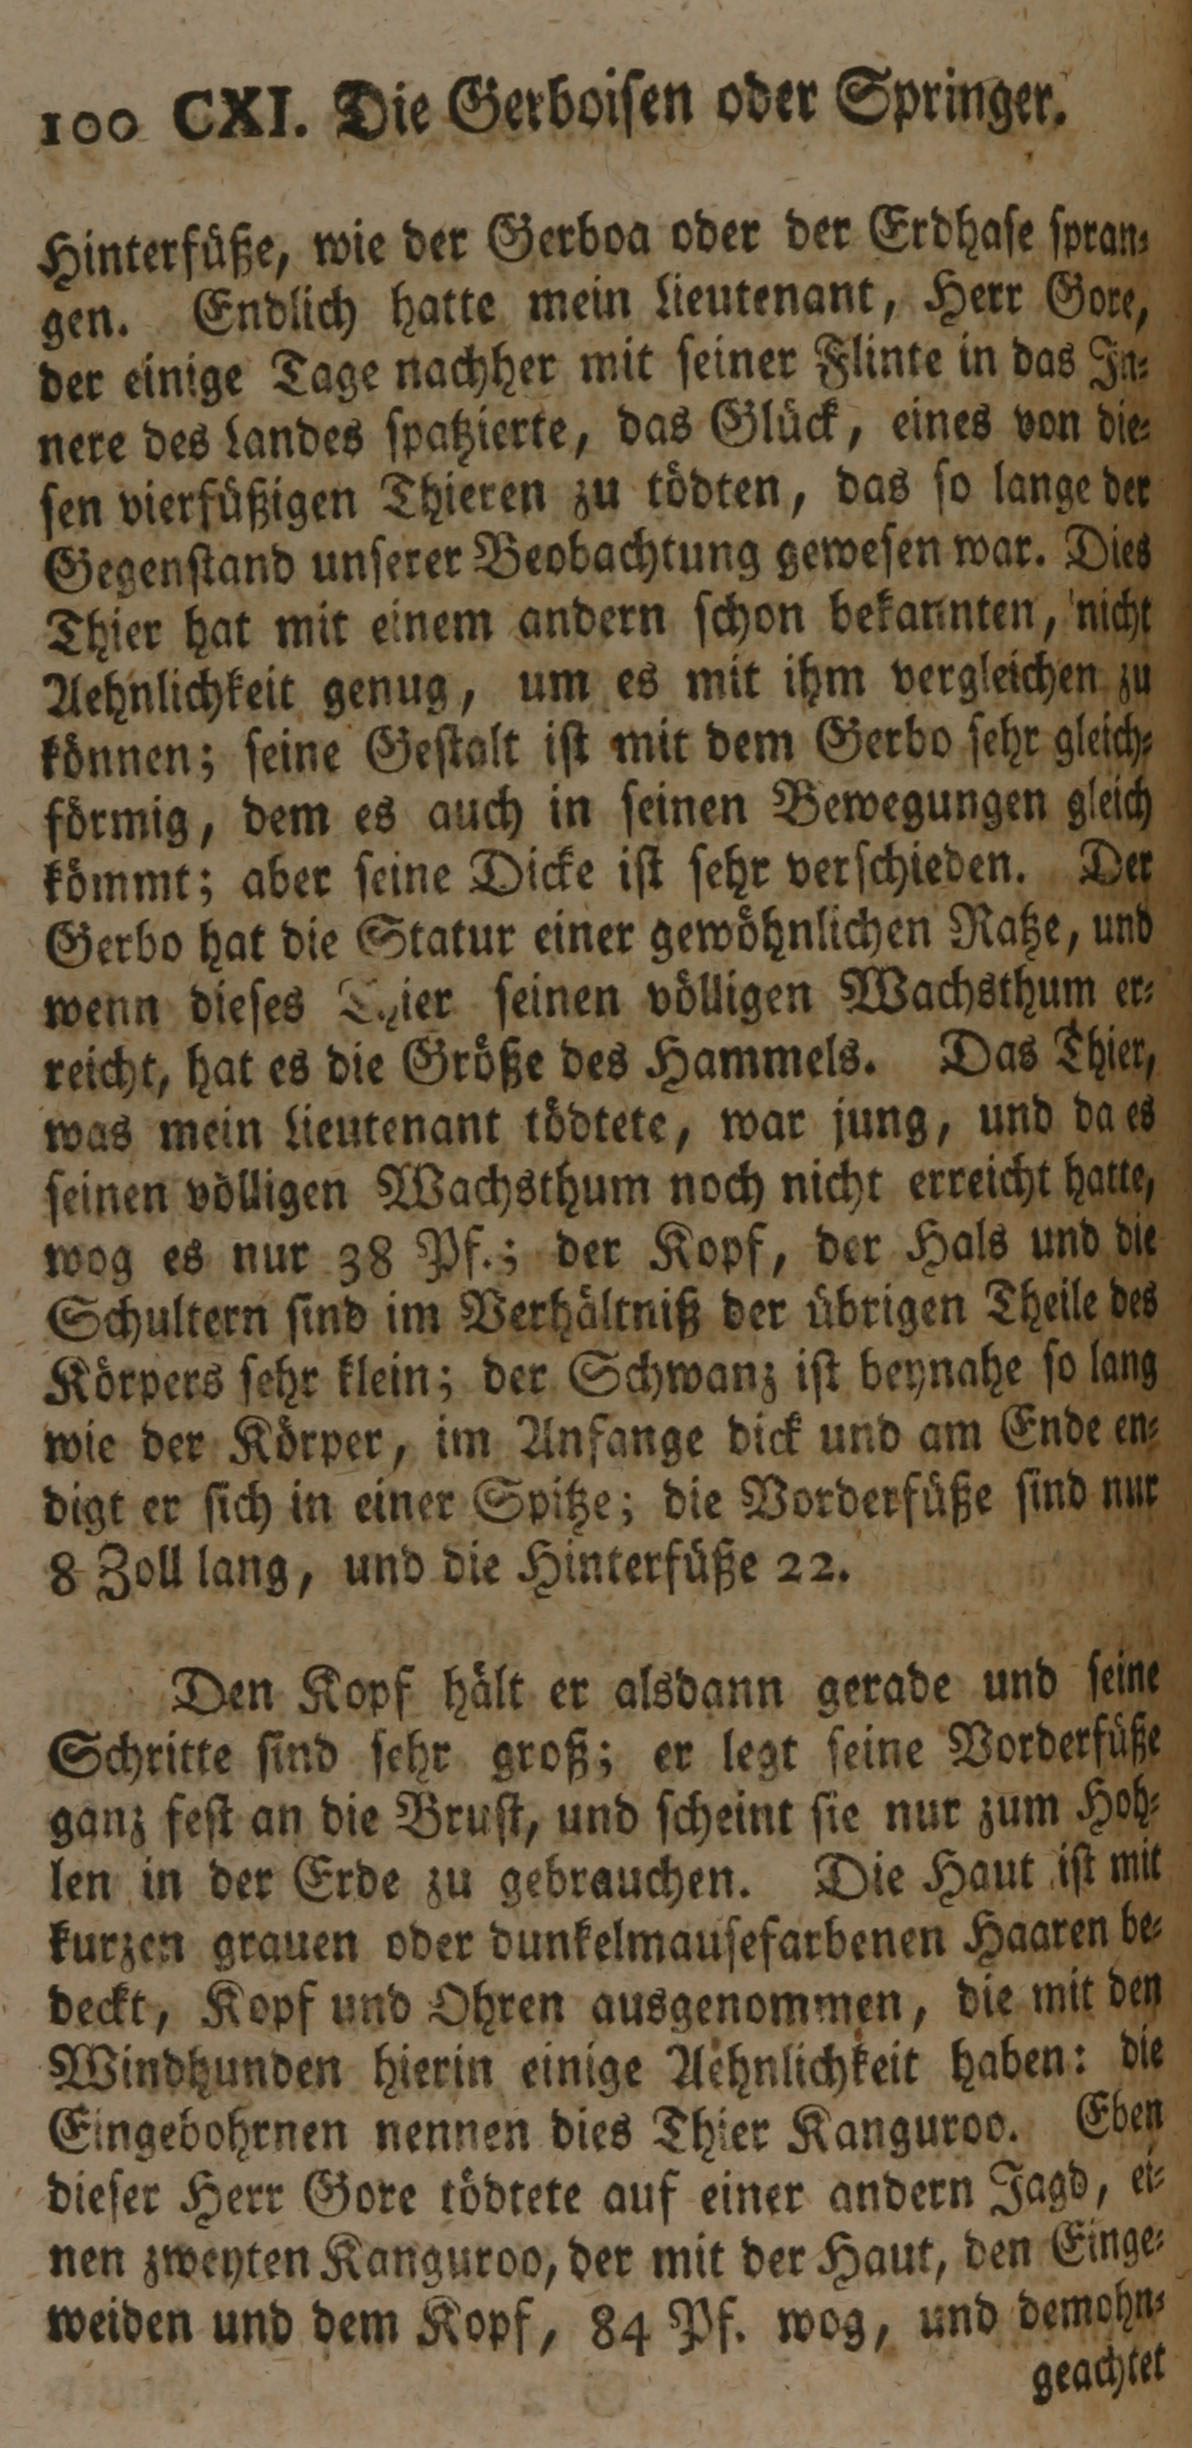 100 CXI. Die Gerboisen oder Springer.
Hinterfüße, wie der Gerboa oder der Erdhase spran-
gen. Endlich hatte mein Lieutenant, Herr Gore,
der einige Tage nachher mit seiner Flinte in das In-
nere des Landes spatzierte, das Glück, eines von die-
sen vierfüßigen Thieren zu tödten, das so lange der
Gegenstand unserer Beobachtung gewesen war. Dies
Thier hat mit einem andern schon bekannten, nicht
Aehnlichkeit genug, um es mit ihm vergleichen zu
können; seine Gestalt ist mit dem Gerbo sehr gleich-
förmig, dem es auch in seinen Bewegungen gleich
kömmt; aber seine Dicke ist sehr verschieden. Der
Gerbo hat die Statur einer gewöhnlichen Ratze, und
wenn dieses Thier seinen völligen Wachsthum er-
reicht, hat es die Größe des Hammels. Das Thier,
was mein Lieutenant tödtete, war jung, und da es
seinen völligen Wachsthum noch nicht erreicht hatte,
wog es nur 38 Pf.; der Kopf, der Hals und die
Schultern sind im Verhältniß der übrigen Theile des
Körpers sehr klein; der Schwanz ist beynahe so lang
wie der Körper, im Anfange dick und am Ende en-
digt er sich in einer Spitze; die Vorderfüße sind nur
8 Zoll lang, und die Hinterfüße 22.
Den Kopf hält er alsdann gerade und seine
Schritte sind sehr groß; er legt seine Vorderfüße
ganz fest an die Brust, und scheint sie nur zum Hoh-
len in der Erde zu gebrauchen. Die Haut ist mit
kurzen grauen oder dunkelmausefarbenen Haaren be-
deckt, Kopf und Ohren ausgenommen, die mit den
Windhunden hierin einige Aehnlichkeit haben: die
Eingebohrnen nennen dies Thier Kanguroo. Eben
dieser Herr Gore tödtete auf einer andern Jagd, ei-
nen zweyten Kanguroo, der mit der Haut, den Einge-
weiden und dem Kopf, 84 Pf. wog, und demohn-
geachtet